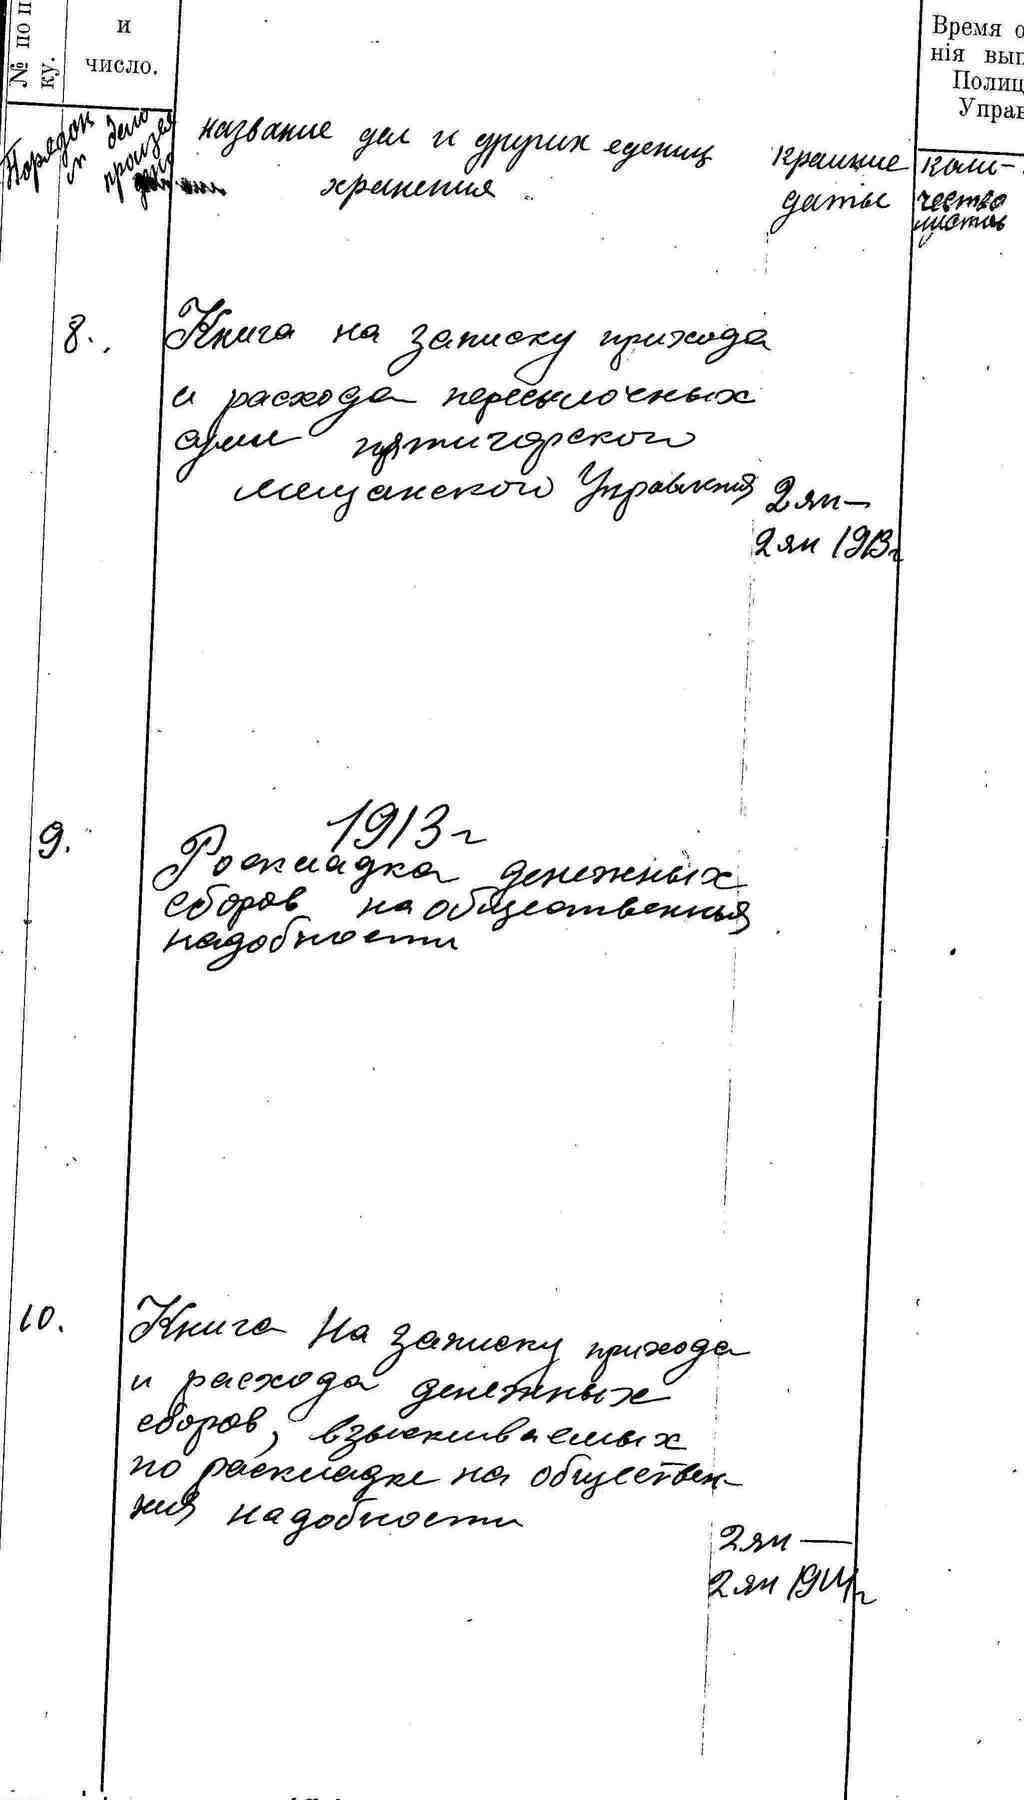 № по п
ку.
и
число.
Время о
нія вып
Полиц
Управ
Порядок
№
дело
произв
название дел и других едениц
хранения
крайние
даты
коли-
чество
листов
8.
Книга на записку прихода
и расхода пересылочных
сумм пятигорского
мещанского Управления
2 ян —
2 ян 1913 г
9.
1913 г
Роскладка денежных
сборов на общественныя
надобности
10.
Книга на записку прихода
и расхода денежных
сборов, взыскиваемых
по раскладке на обществен-
ныя надобности
2 ян —
2 ян 1914 г